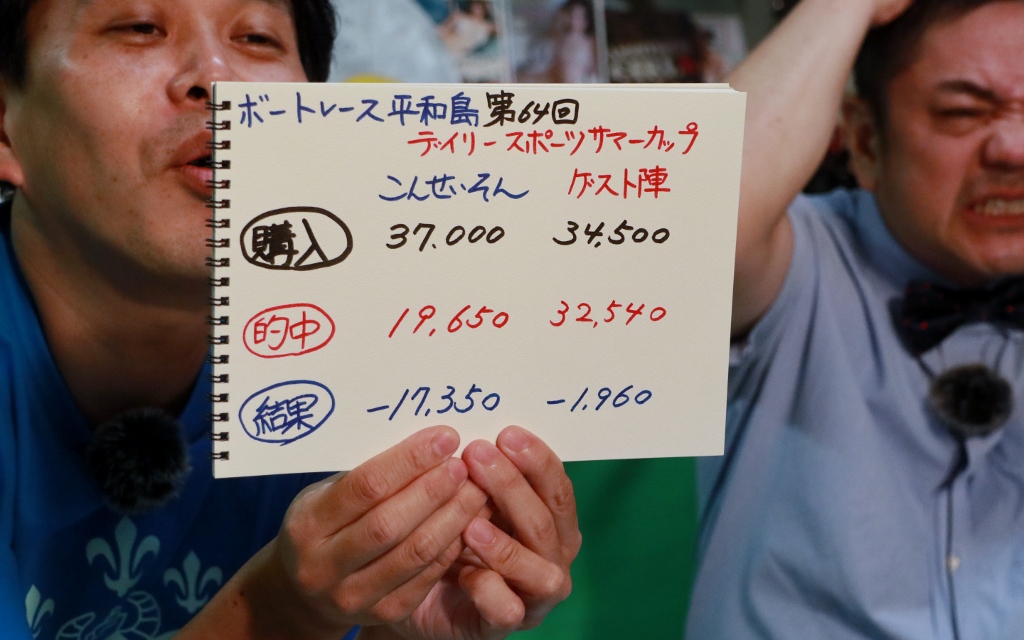 ボートレース平和島第64回
デイリースポーツサマーカップ
こんせいそん ゲスト陣
購入 37.000 34,500
的中 19,650 32,540
結果 -17,350 -1.960